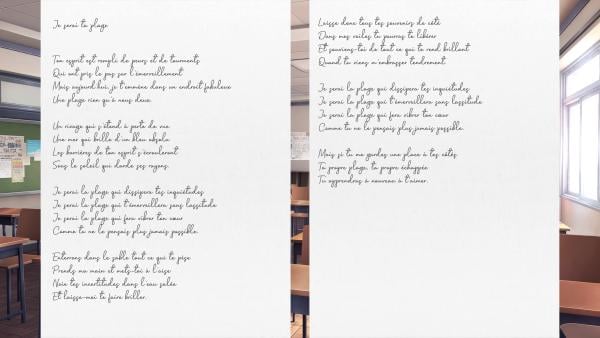 Je serai ta plage
Ton esprit est rempli de peurs et de tourments
Qui ont pris le pas sur l'émerveillement
Mais aujourd'hui, je t'emmène dans un endroit fabuleux
Une plage rien qu'à nous deux.
Un rivage qui s'étend à perte de vue
Une mer qui brille d'un bleu absolu
Les barrières de ton esprit s'écrouleront
Sous le soleil qui darde ses rayons.
Je serai la plage qui dissipera tes inquiétudes
Je serai la plage qui t'émerveillera sans lassitude
Je serai la plage qui fera vibrer ton cœur
Comme tu ne le pensais plus jamais possible.
Enterrons dans le sable tout ce qui te pèse
Prends ma main et mets-toi à l'aise
Noie tes incertitudes dans l'eau salée
Et laisse-moi te faire briller.
Laisse donc tous tes souvenirs de côté
Dans mes voiles tu pourras te libérer
Et souviens-toi de tout ce qui te rend brillant
Quand tu viens m'embrasser tendrement.
Je serai la plage qui dissipera tes inquiétudes
Je serai la plage qui t'émerveillera sans lassitude
Je serai la plage qui fera vibrer ton cœur
Comme tu ne le pensais plus jamais possible.
Mais si tu me gardes une place à tes côtés
Ta propre plage, ta propre échappée
Tu apprendras à nouveau à t'aimer.